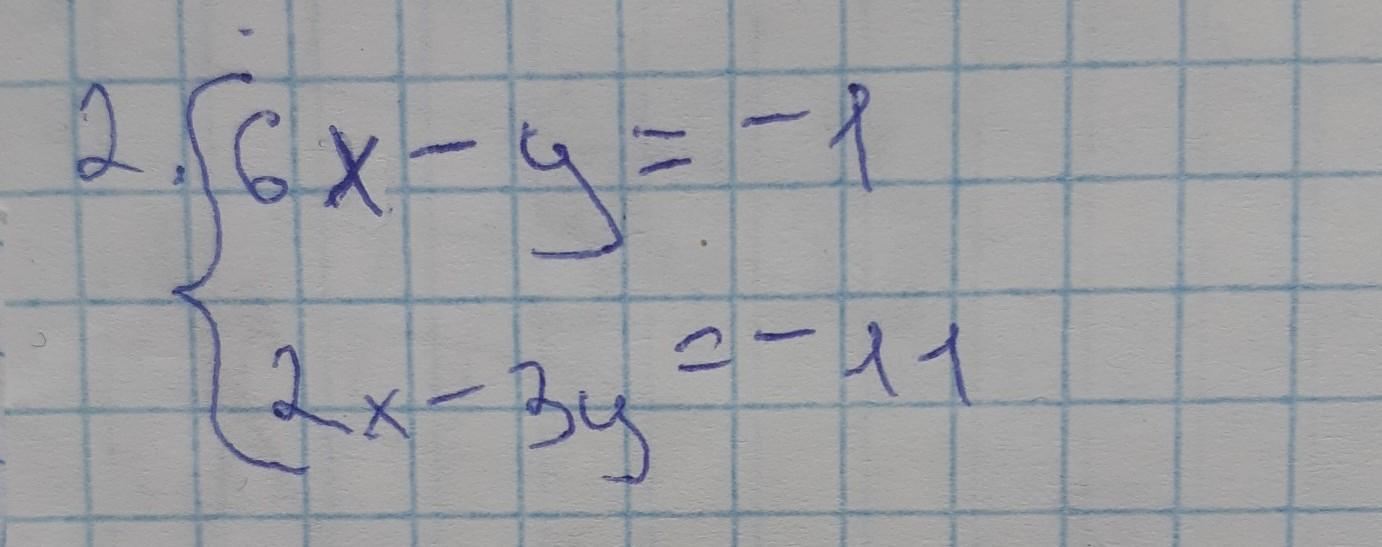 2. { 6x - y = - 1
2x - 3y = - 11